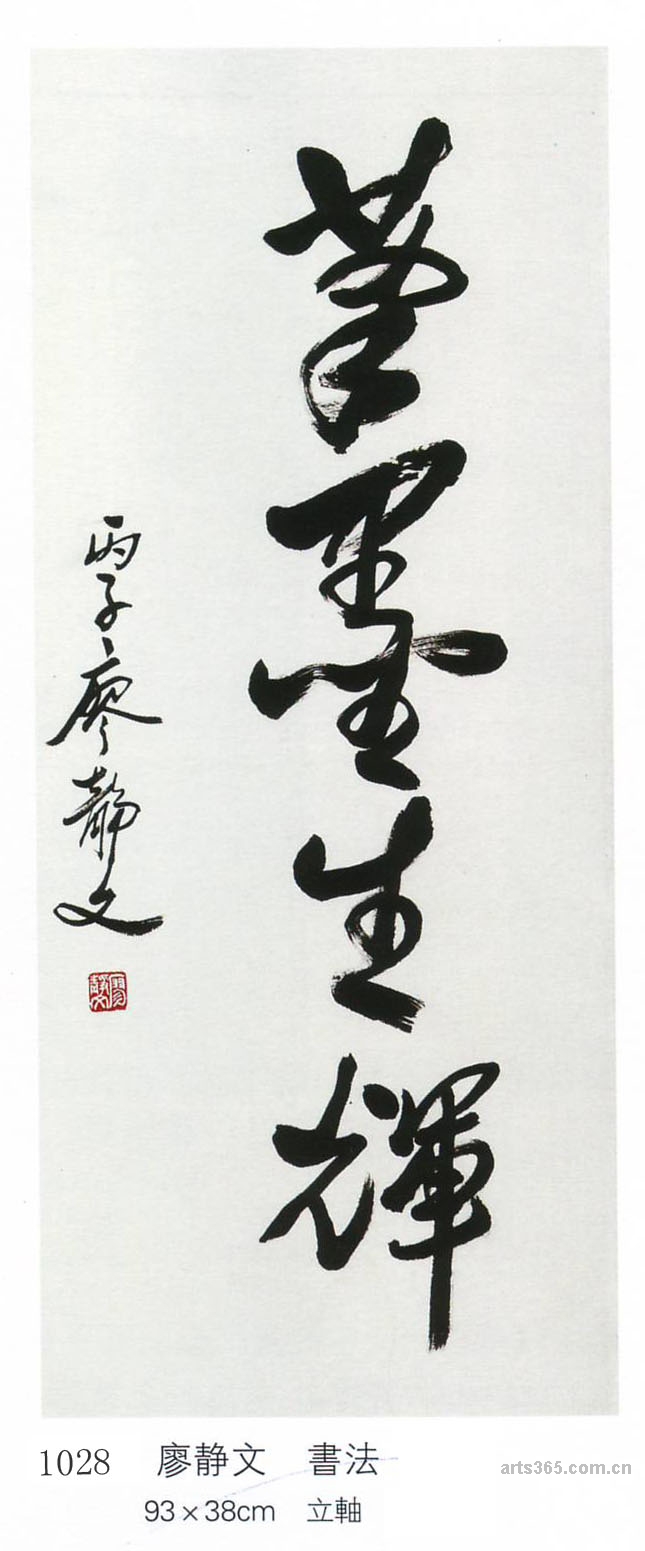 筆墨生輝
丙子廖靜文
廖靜文
1028 廖静文 書法
93×38cm 立軸
arts365.com.cn